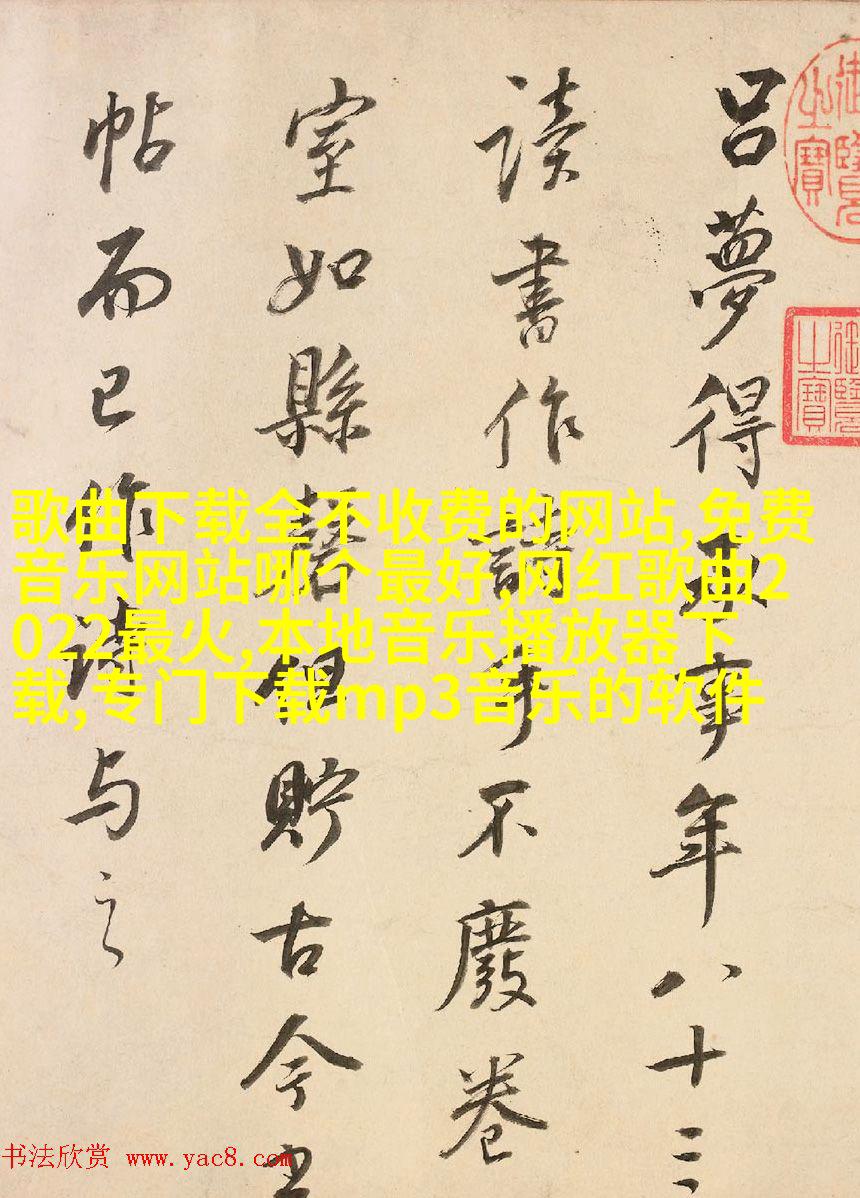 御覽之寶
吕夢得承事年八十三
御覽之寶
读書作詩手不廢卷
室如縣磬但貯古今
帖而已作詩与之
歌曲下载全不收费的网站,免费
音乐网站哪个最好,网红歌曲2
022最火,本地音乐播放器下
载,专门下载mp3音乐的软件
书法欣赏 www.yac8.com